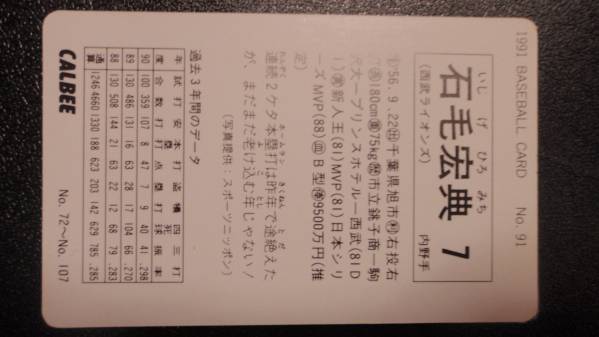 1991 BASEBALL CARD No. 91
いし げ ひろ みち
石毛宏典 7 内野手
(西武ライオンズ)
'56.9.22㊥千葉県旭市 右投右
180cm 75kg 市立銚子商ー駒
沢大ープリンスホテルー西武(81D
1) 新人王(81)MVP(81)日本シリ
ーズMVP(88) B型 9500万円(推
定)
連続2ケタ本塁打は昨年で途絶えた
が、まだまだ老け込む年じゃない!
(写真提供:スポーツニッポン)
過去3年間のデータ
年度 試合 打数 安打 本塁打 打点 盗塁 犠打 四死球 三振 打率
90 100 359 107 8 47 7 9 40 41 .298
89 130 486 131 16 63 28 17 104 66 .270
88 130 508 144 21 63 22 12 68 79 .283
通算 1246 4660 1330 188 623 203 142 629 785 .285
CALBEE No. 72〜No. 107